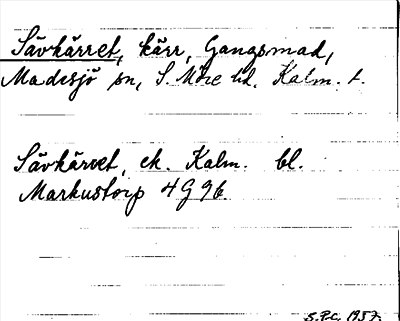 Sävkärret, kärr, Gangsmad,
Madesjö sn, S. Möre hd. Kalm. l.
Sävkärret, ek. Kalm. bl.
Markustorp 4G9b
S.P.C. 1957.